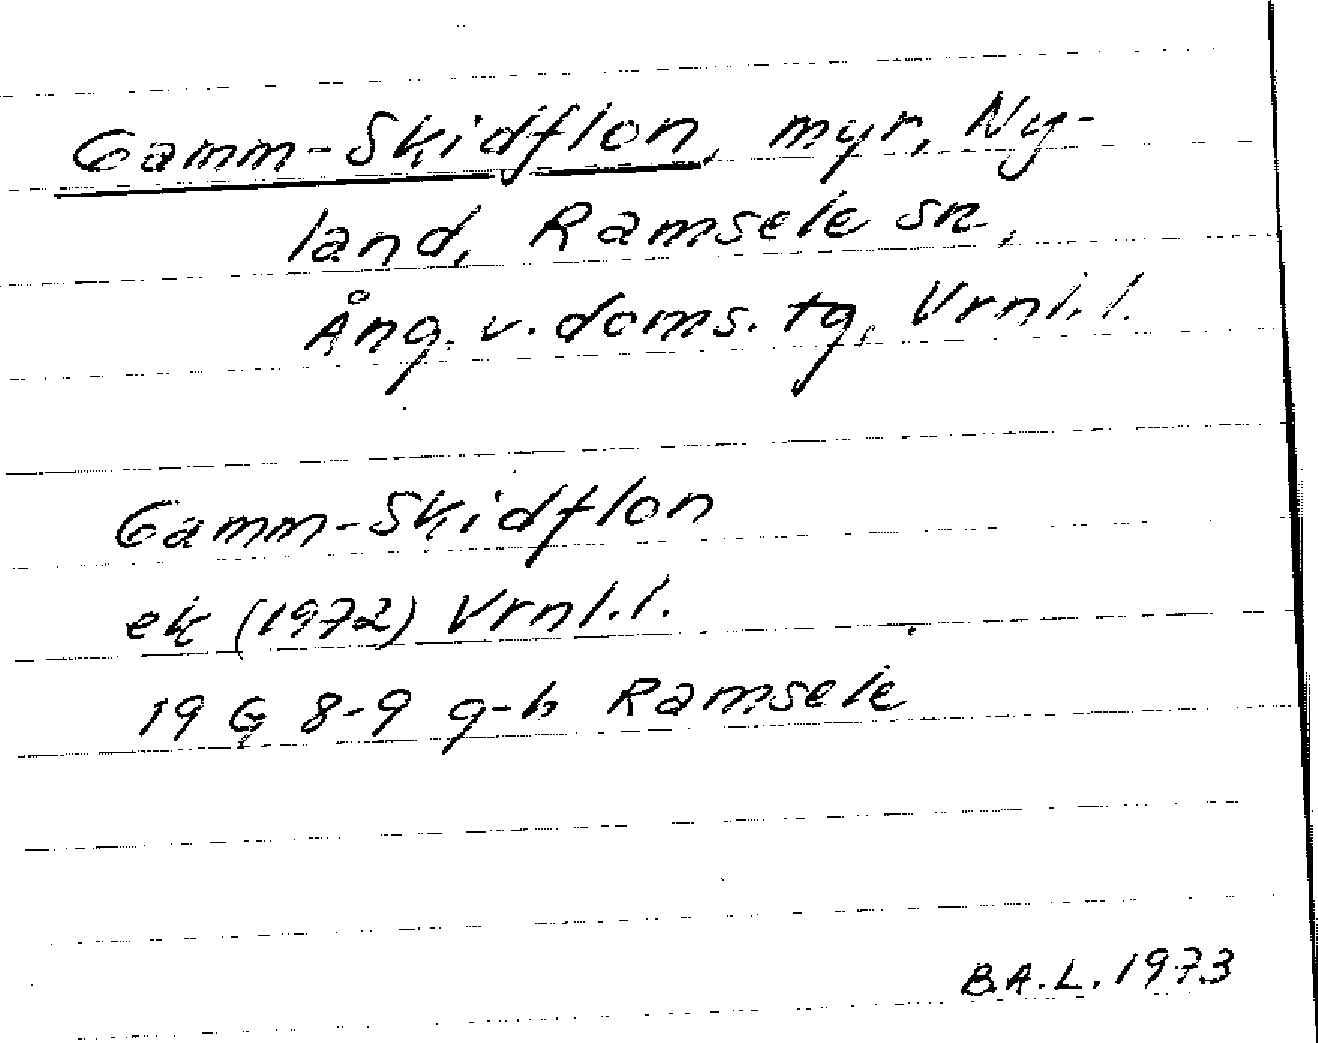 Gamm-Skidflon, myr, Ny-
land, Ramsele sn,
Ång. v. doms. tg, Vrnl. l.
Gamm-Skidflon
ek (1972) Vrnl. l.
19 G 8-9 g-h Ramsele
B.A.L. 1973